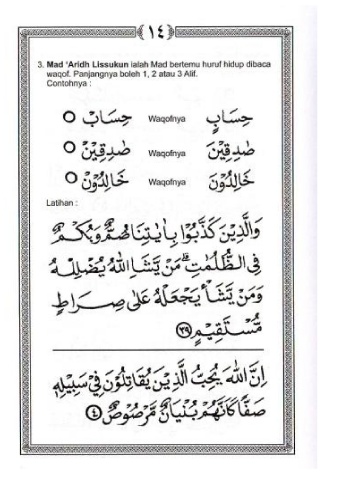 ١٤
3. Mad 'Aridh Lissukun ialah Mad bertemu huruf hidup dibaca
waqof. Panjangnya boleh 1, 2 atau 3 Alif.
Contohnya :
حِسَابٍ Waqofnya حِسَابْ ○
صٰدِقِيْنَ Waqofnya صٰدِقِيْنْ ○
خَالِدُوْنَ Waqofnya خَالِدُوْنْ ○
Latihan :
وَالَّذِيْنَ كَذَّبُوْا بِاٰيٰتِنَا صُمٌّ وَّبُكْمٌ
فِى الظُّلُمٰتِ ۗ مَنْ يَّشَاِ اللّٰهُ يُضْلِلْهُ
وَمَنْ يَّشَأْ يَجْعَلْهُ عَلٰى صِرَاطٍ
مُّسْتَقِيْمٍ ٣٩
اِنَّ اللّٰهَ يُحِبُّ الَّذِيْنَ يُقَاتِلُوْنَ فِيْ سَبِيْلِهٖ
صَفًّا كَاَنَّهُمْ بُنْيَانٌ مَّرْصُوْصٌ ٤